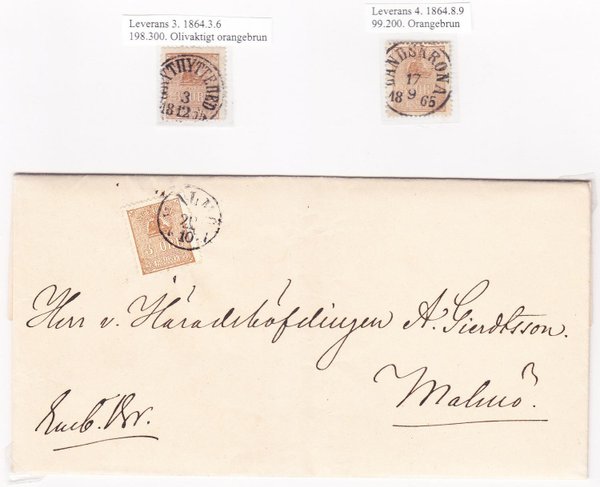 Leverans 3. 1864.3.6
198.300. Olivaktigt orangebrun
Leverans 4. 1864.8.9
99.200. Orangebrun
3
12
LANDSKRONA
17
9
18 65
20
10
Herr v. Häradshöfdingen A. Gierdtsson.
Malmö.